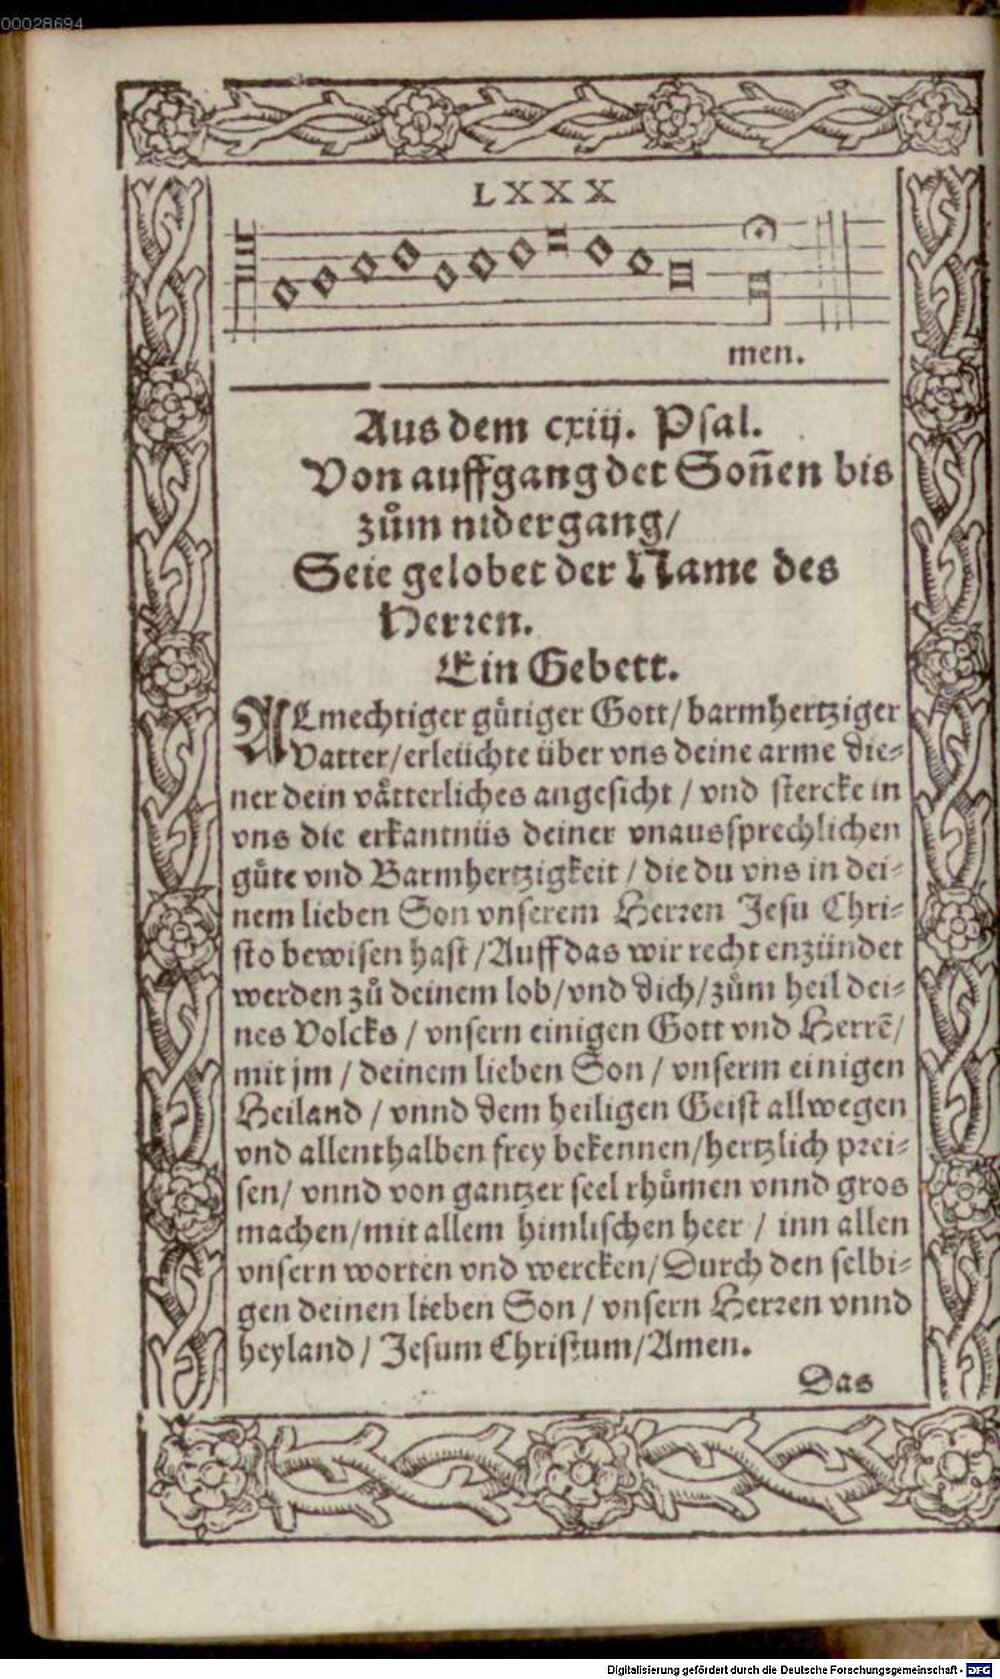 00028694
LXXX
men.
Aus dem cxiij. Psal.
Von auffgang det Soñen bis
zům nidergang/
Seie gelobet der Name des
Herren.
Ein Gebett.
ALmechtiger gůtiger Gott/ barmhertziger
Vatter/erleüchte über vns deine arme die⸗
ner dein våtterliches angesicht / vnd stercke in
vns die erkantnüs deiner vnaussprechlichen
gůte vnd Barmhertzigkeit / die du vns in dei⸗
nem lieben Son vnserem Herren Jesu Chri⸗
sto bewisen hast /Auff das wir recht enzündet
werden zů deinem lob/vnd dich/zům heil dei⸗
nes Volcks / vnsern einigen Gott vnd Herrē/
mit jm / deinem lieben Son / vnserm einigen
Heiland / vnnd dem heiligen Geist allwegen
vnd allenthalben frey bekennen/hertzlich prei⸗
sen/ vnnd von gantzer seel rhůmen vnnd gros
machen/mit allem himlischen heer / inn allen
vnsern worten vnd wercken/Durch den selbi⸗
gen deinen lieben Son / vnsern Herren vnnd
heyland / Jesum Christum/Amen.
Das
Digitalisierung gefördert durch die Deutsche Forschungsgemeinschaft - DFG